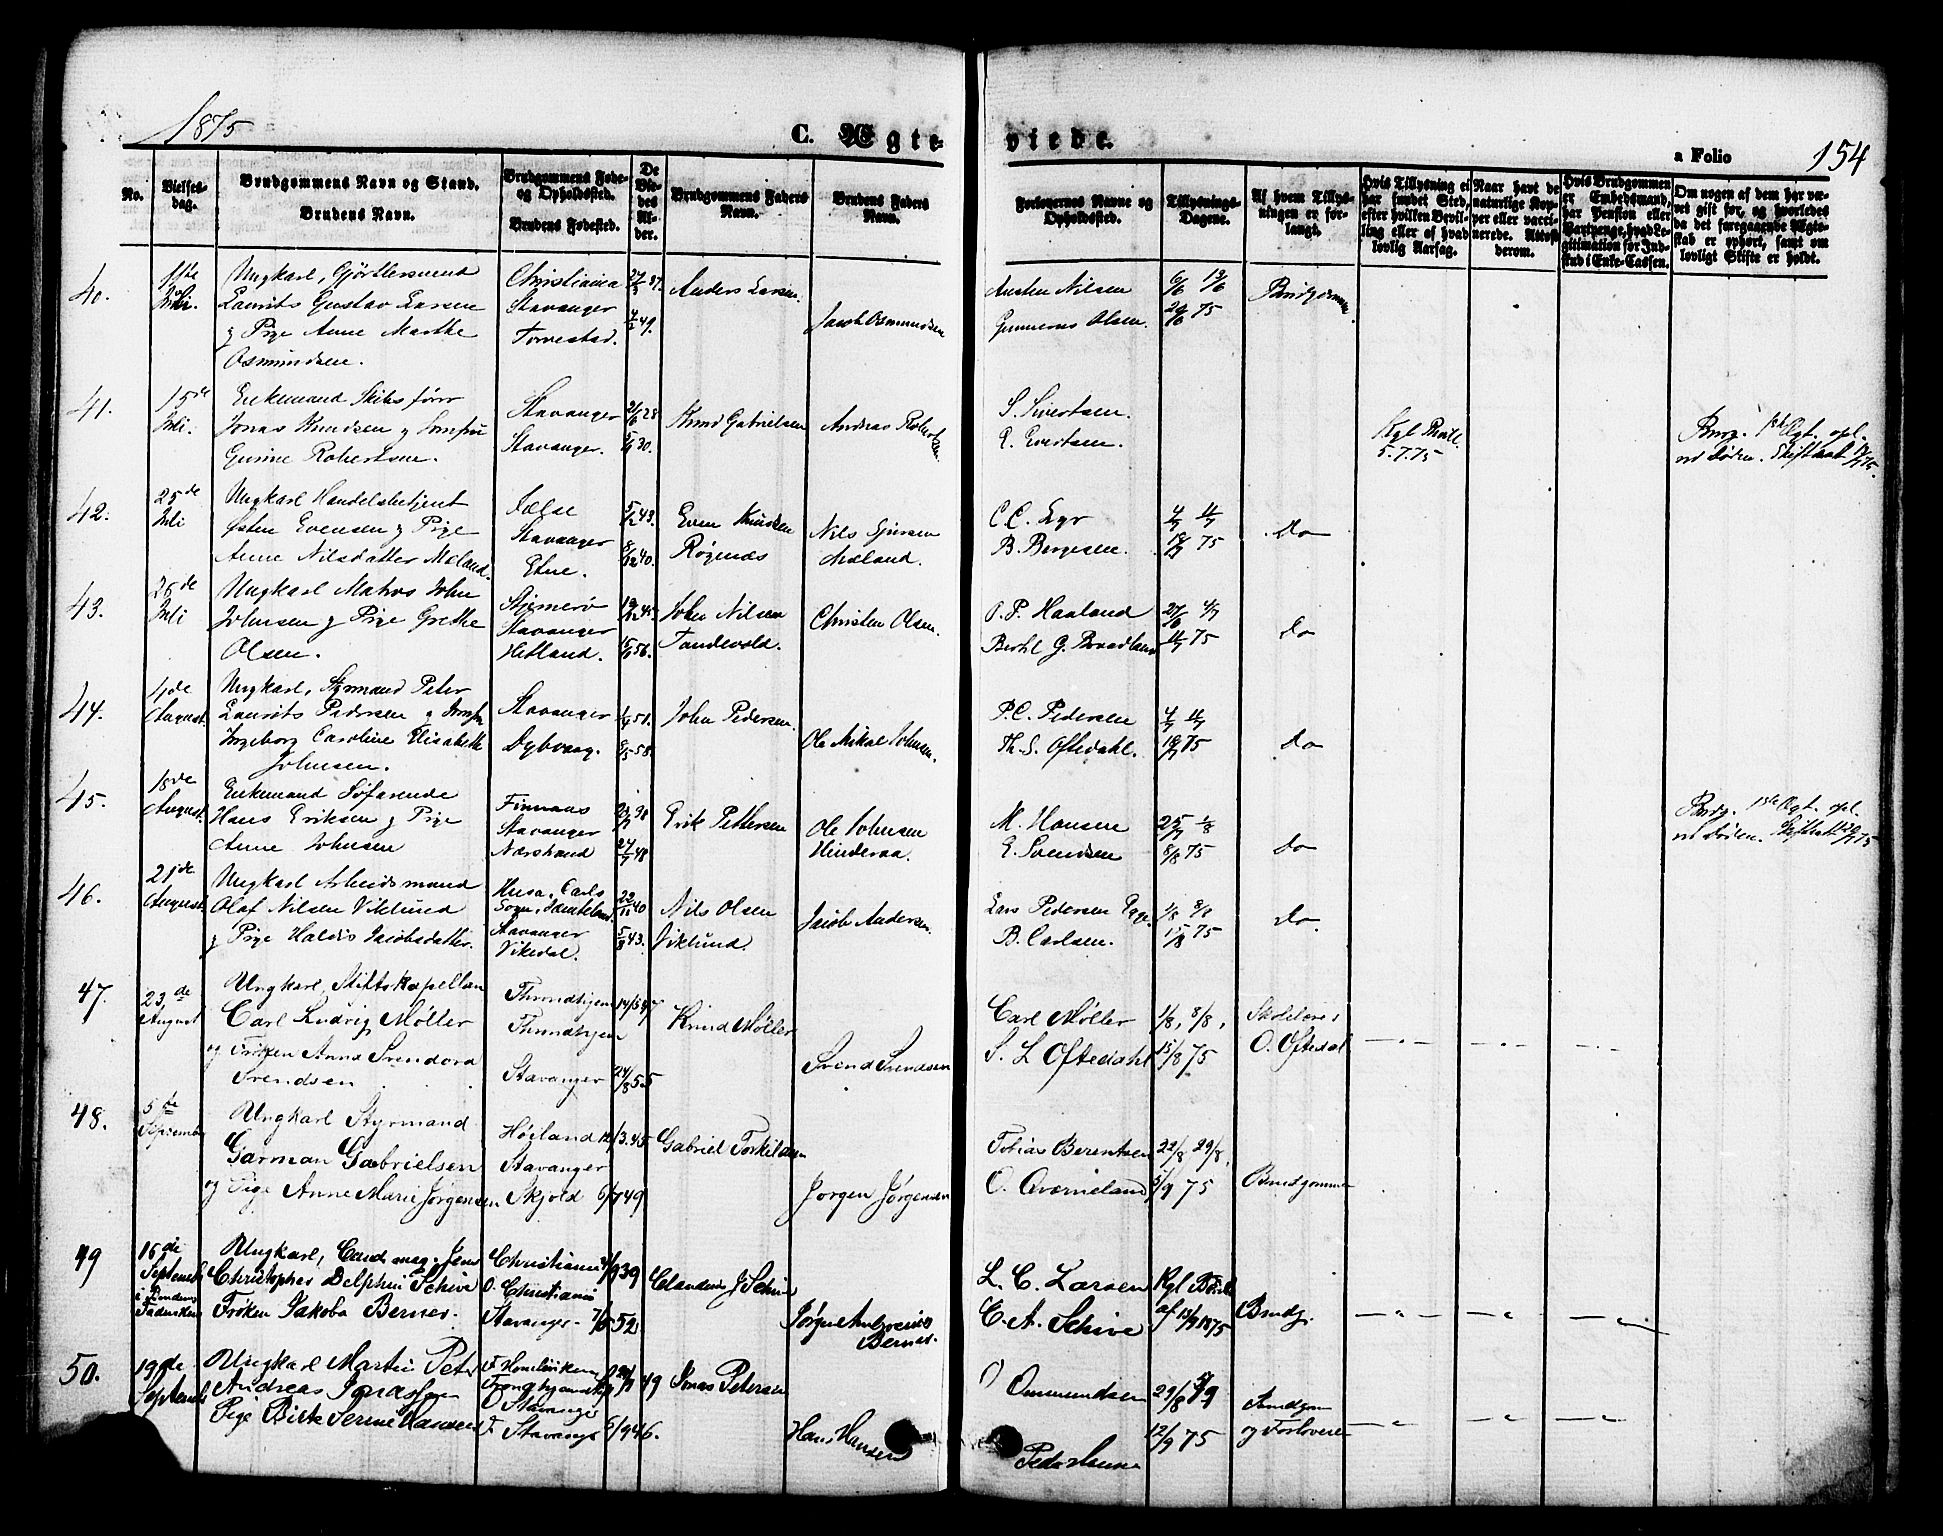 1875
C. Ægte-
viede.
a Folio
154
No.
Vielses-
dag.
Brudgommens Navn og Stand.
Brudens Navn.
Brudgommens Føde-
og Opholdssted.
Brudens Fødested.
De
Vie-
des
Al-
der.
Brudgommens Faders
Navn.
Brudens Faders
Navn.
Forlovernes Navne og
Opholdssted.
Tillysnings-
Dagene.
Af hvem Tillys-
ningen er for-
langt.
Hvis Tillysning ei
har fundet Sted,
efter hvilken Bevil-
ling eller af hvad
lovlig Aarsag.
Naar havt de
naturlige Kop-
per eller vacci-
nerede. Attest
derom.
Hvis Brudgommen
er Embedsmand,
har Pension eller
Vartpenge, hvad Le-
gitimation for Ind-
skud i Enke-Cassen.
Om nogen af dem har væ-
ret gift før, og hvorledes
da det foregaaende Ægte-
skab er ophørt, samt om
lovligt Skifte er holdt.
40.
11te
Juli.
Ungkarl, Gjørtlersvend
Laurits Gustav Larsen
og Pige Anne Marthe
Osmundsen.
Christiania
Stavanger
Torvestad.
Anders Larsen
Jacob Osmundsen
Austen Nilsen
Gunnerus Olsen
6/6 13/6
20/6 75
Brudgommen
41.
15de
Juli.
Enkemand Skibsfører
Jonas Knudsen og Jomfru
Gurine Robertsen.
Stavanger
Stavanger.
2/6 28
5/4 30.
Knud Gabrielsen
Andreas Robertsen
S. Sivertsen.
E. Evertsen.
Kgl Bevill.
5.7.75
Brudg. 1ste Ægt. opl.
ved Døden. Skifteatt
42.
25de
Juli
Ungkarl Handelsbetjent
Østen Evensen og Pige
Anne Nilsdatter Mæland.
Stavanger
Etne.
5/2 43.
8/12 40.
Even Knudsen
Røgenæs
Nils
Mæland.
C. C.
B. Børgesen.
4/7 11/7
18/7 75
Do
43.
25de
Juli
Ungkarl Matros John
Johnsen og Pige Grethe
Olsen.
Stjernerø
Stavanger
Hetland.
John Nilsen
Tandevold.
Christen Olsen.
O. P. Haaland
Berthl G. Braadland
27/6 4/7
11/7 75
Do
44.
1de
August.
Ungkarl, Styrmand Peter
Laurits Pedersen og Jomfru
Ingeborg Caroline Elisabeth
Johnsen.
Stavanger
Dybvaag.
John Pedersen
Ole Mikal Johnsen.
P. C. Pedersen
Th. S. Oftedahl.
4/7 11/7
18/7 75
Do
45.
18de
August.
Enkemand Søfarende
Hans Eriksen og Pige
Anne Johnsen
Finnaas
Stavanger
Nærstrand
27/7 48
Erik Pettersen
Ole Johnsen
Hinderaa.
M. Hansen
E. Svendsen
25/7 1/8
8/8 75
Do
Brudg. 1ste Ægt. opl.
ved Døden. Skifteatt
46.
21de
August.
Ungkarl Arbeidsmand
Olaf Nilsen Viklund
og Pige Haldis Jacobsdatter.
Husa, Carls
Sogn,
Stavanger
Vikedal.
Nils Olsen
Viklund.
Jacob Andersen.
Lars Pedersen
B. Carlsen.
1/8 8/8
15/8 75
Do.
47.
23de
August
Ungkarl, Stiftskapellan
Carl Ludvig Møller
og Frøken Anna Svendora
Svendsen
Throndhjem
Throndhjem
Stavanger
14/5 47
24/8 55
Knud Møller
Svend Svendsen
Carl Møller
S. L Oftedahl
1/8, 8/8,
15/8 75
Skolelærer
O. Oftedal
48.
5te
September
Ungkarl Styrmand
Garman Gabrielsen
og Pige Anne Marie Jørgensen
Høiland
Stavanger
Skjold
6/7 49
Gabriel Torkildsen
Jørgen Jørgensen
Tobias Berentsen
O. Qværneland
22/8 29/8,
5/9 75
Brudgommen
49
16de
Septembr
i Brudens
Faders Hus
Ungkarl, Cand. mag. Jens
Christopher Delphin Schive
Frøken Jakoba Berner.
Christiania
O. Christiania
Stavanger
7/6 52
Claudius J Schive
Jørgen
Berner.
L. C. Larsen
C. A. Schive
Kgl Bevill
af 13/9 1875
Brudg.
50.
19de
September
Ungkarl Martin Peter
Andreas Jonassen
Pige Birte Serine Hansen
O Stavanger
F. Stavanger
6/9 46.
Jonas Petersen
Hans Hansen
Ommundsen
Peder Hansen
29/8 5/9
12/9 75
Brudgom
og Forlovere